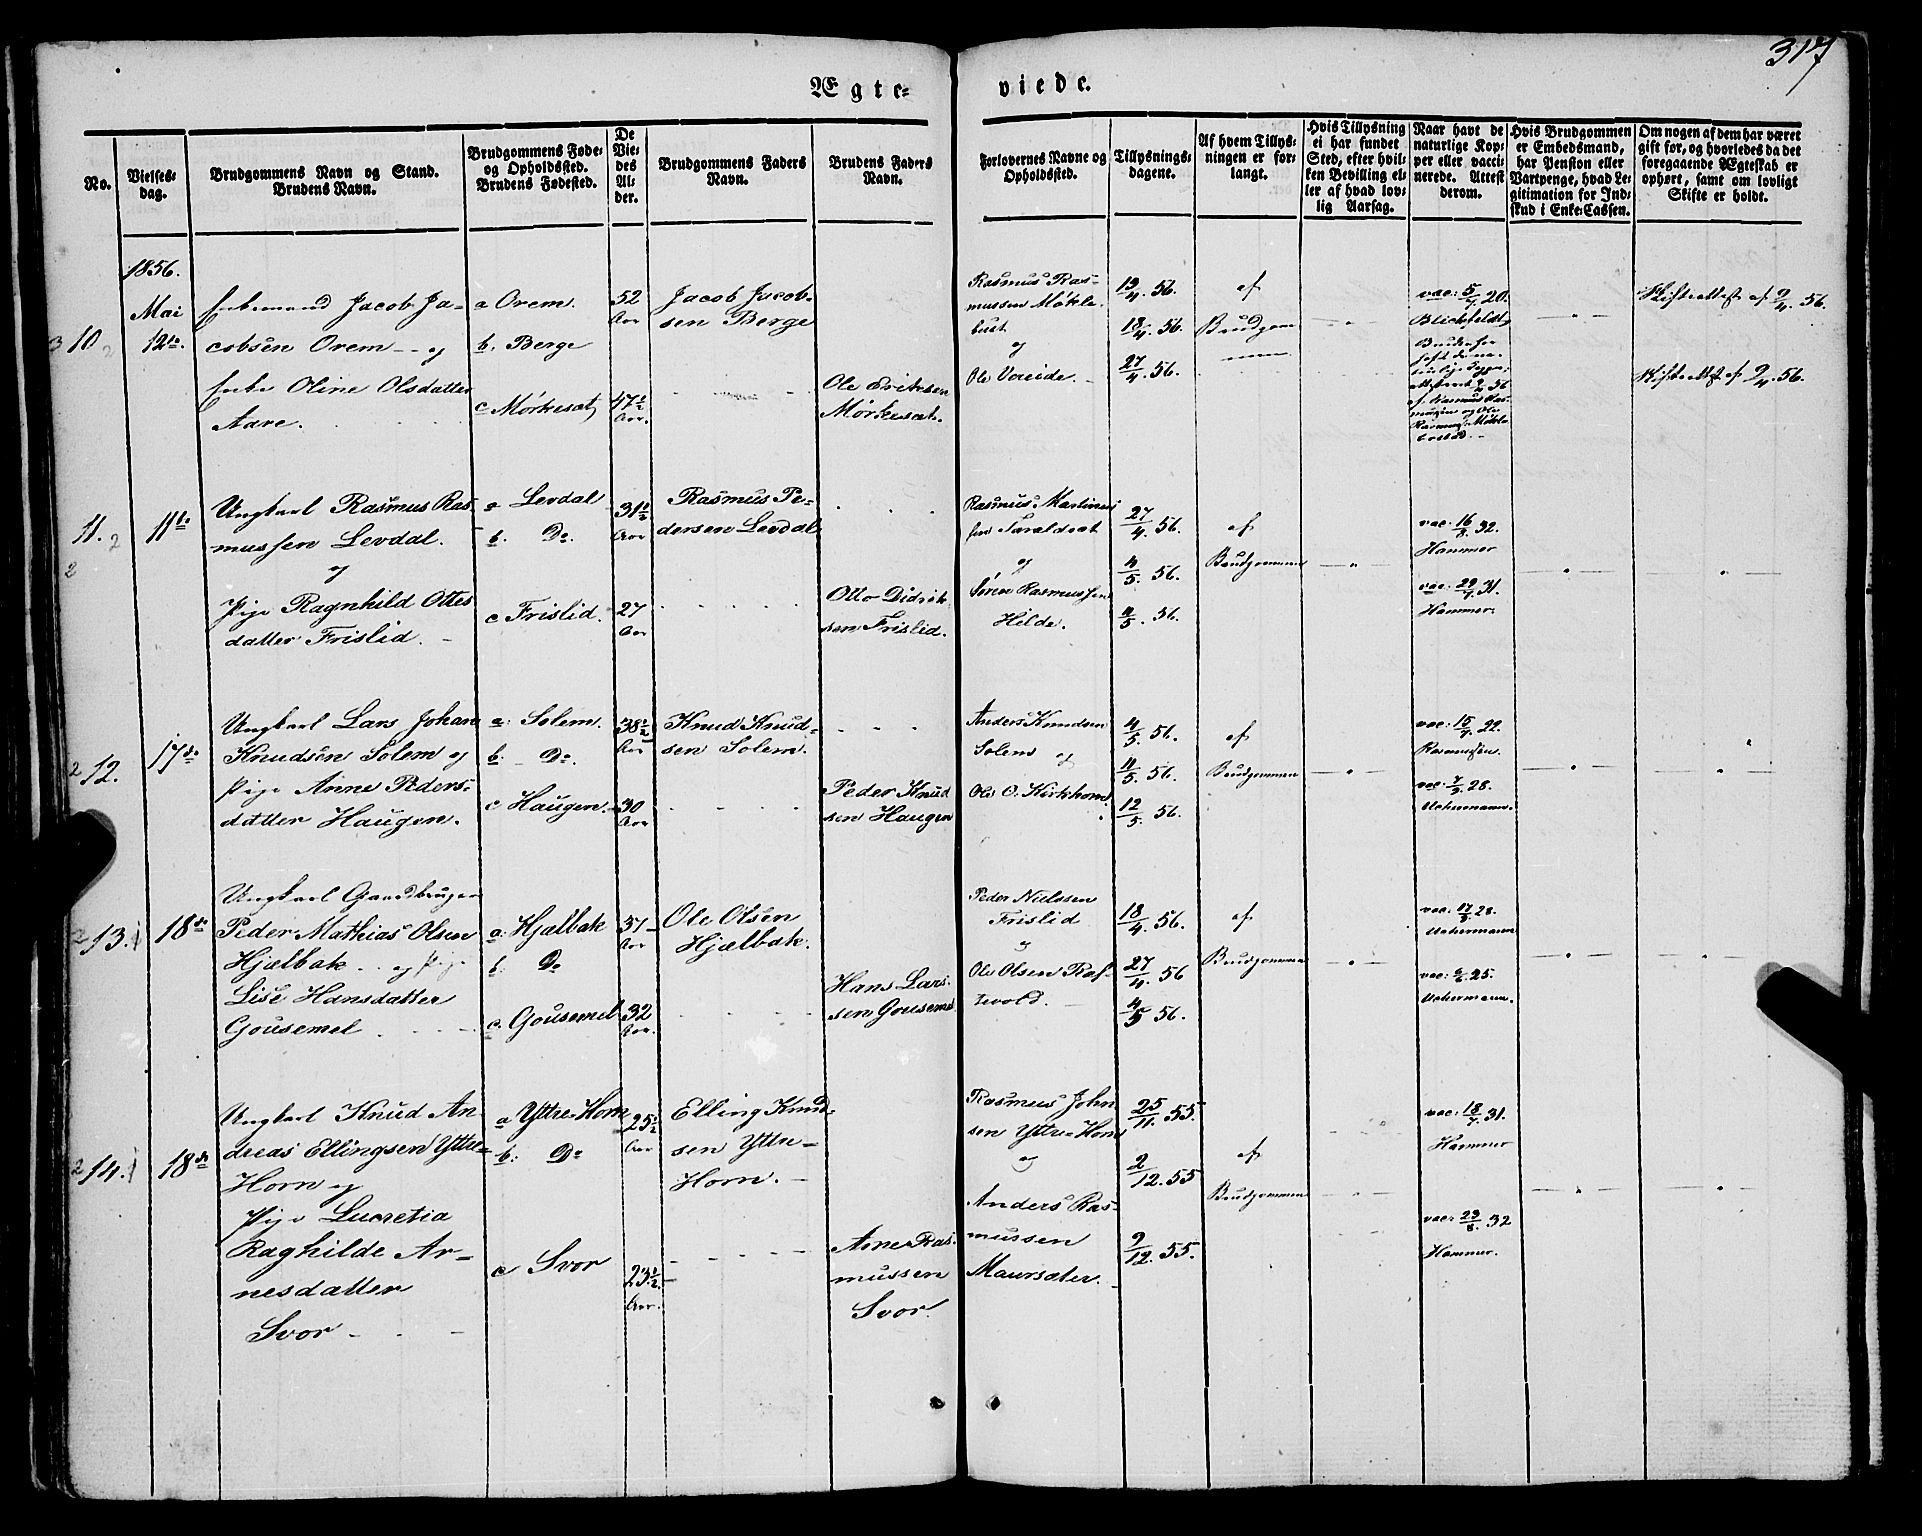 317
Ægte-
viede.
No.
Vielses-
dag.
Brudgommens Navn og Stand.
Brudens Navn.
Brudgommens Føde-
og Opholdsted.
Brudens Fødested.
De
Vie-
des
Al-
der.
Brudgommens Faders
Navn.
Brudens Faders
Navn.
Forlovernes Navne og
Opholdsted.
Tillysnings-
dagene.
Af hvem Tillys-
ningen er for-
langt.
Hvis Tillysning
ei har fundet
Sted, efter hvil-
ken Bevilling el-
ler af hvad lov-
lig Aarsag.
Naar havt de
naturlige Kop-
per eller vacci-
nerede. Attest
derom.
Hvis Brudgommen
er Embedsmand,
har Pension eller
Vartpenge, hvad Le-
gitimation for Ind-
skud i Enke-Cassen.
Om nogen af dem har været
gift før, og hvorledes da det
foregaaende Ægteskab er
ophørt, samt om lovligt
Skifte er holdt.
1856.
Mai
10
12te.
Enkemand Jacob Ja-
cobsen Orem – og
Enke Oline Olsdatter
Aare.
a Orem.
b. Berge
c Mørkesæt
52
Aar
47 1/2
Aar.
Jacob Jacob-
sen Berge
Ole Eriksen
Mørkesæt.
Rasmus Ras-
mussen Møkle-
bust
og
Ole Voreide.
13/4. 56.
18/4. 56.
27/4. 56.
af
Brudgom
vac: 5/7. 20.
Blichfeldt
Skifteattest af 9/4. 56.
Skifteattest af 9/4. 56.
11.
11te
Ungkarl Rasmus Ras-
mussen Levdal.
og
Pige Ragnhild Ottes
datter Frislid. –
a Levdal
b. Do.
c Frislid.
31 1/2
Aar
27
Aar
Rasmus Pe-
dersen Levdal
Otto Didrik
sen Frislid.
Rasmus Martinus
sen Taraldsæt
og
Søren Rasmussen
Hilde.
27/4. 56.
4/5. 56.
11/5. 56.
af
Brudgommen
vac: 16/8. 32.
Hammer
vac: 29/7. 31.
Hammer.
12.
17de
Ungkarl Lars Johan
Knudsen Solem og
Pige Anne Peders-
datter Haugen.
a. Solem.
b. Do.
c Haugen.
38 1/2
Aar
30
Aar
Knud Knud-
sen Solem.
Peder Knud
sen Haugen
Anders Knudsen
Solem og
Ole O. Kirkhorn
4/5. 56.
11/5. 56.
12/5. 56.
af
Brudgommen
vac: 15/7. 22.
Rasmussen.
vac: 7/9. 28.
Uchermann.
13.
18de
Ungkarl Gaardbruger
Peder Mathias Olsen
Hjælbak – og Pige
Lise Hansdatter
Gousemel.
a. Hjælbak
b. Do
c. Gousemel
37
Aar
32
Aar.
Ole Olsen
Hjælbak.
Hans Lars-
sen Gousemel
Peder Nielssen
Frislid
og
Ole Olsen Raf-
tevold.
18/4. 56.
27/4. 56
4/5 56.
af
Brudgommen
vac: 17/8. 28.
Uchermann
vac: 6/6. 25.
Uchermann.
14.
18de
Ungkarl Knud An
dreas Ellingsen Yttre-
Horn og
Pige Lucretia
Raghilde Ar-
nesdatter
Svor
a Yttre-Horn
b. Do
c Svor
25 1/2
Aar
23 1/2
Aar.
Elling Knud-
sen Yttre-
Horn. –
Arne Ras-
mussen
Svor.
Rasmus John
sen Yttre-Horn
og
Anders Ras-
mussen
Maursæter.
25/11. 55.
2/12. 55
9/12. 55.
af
Brudgommen
vac: 18/7. 31.
Hammer
vac: 23/8. 32
Hammer.